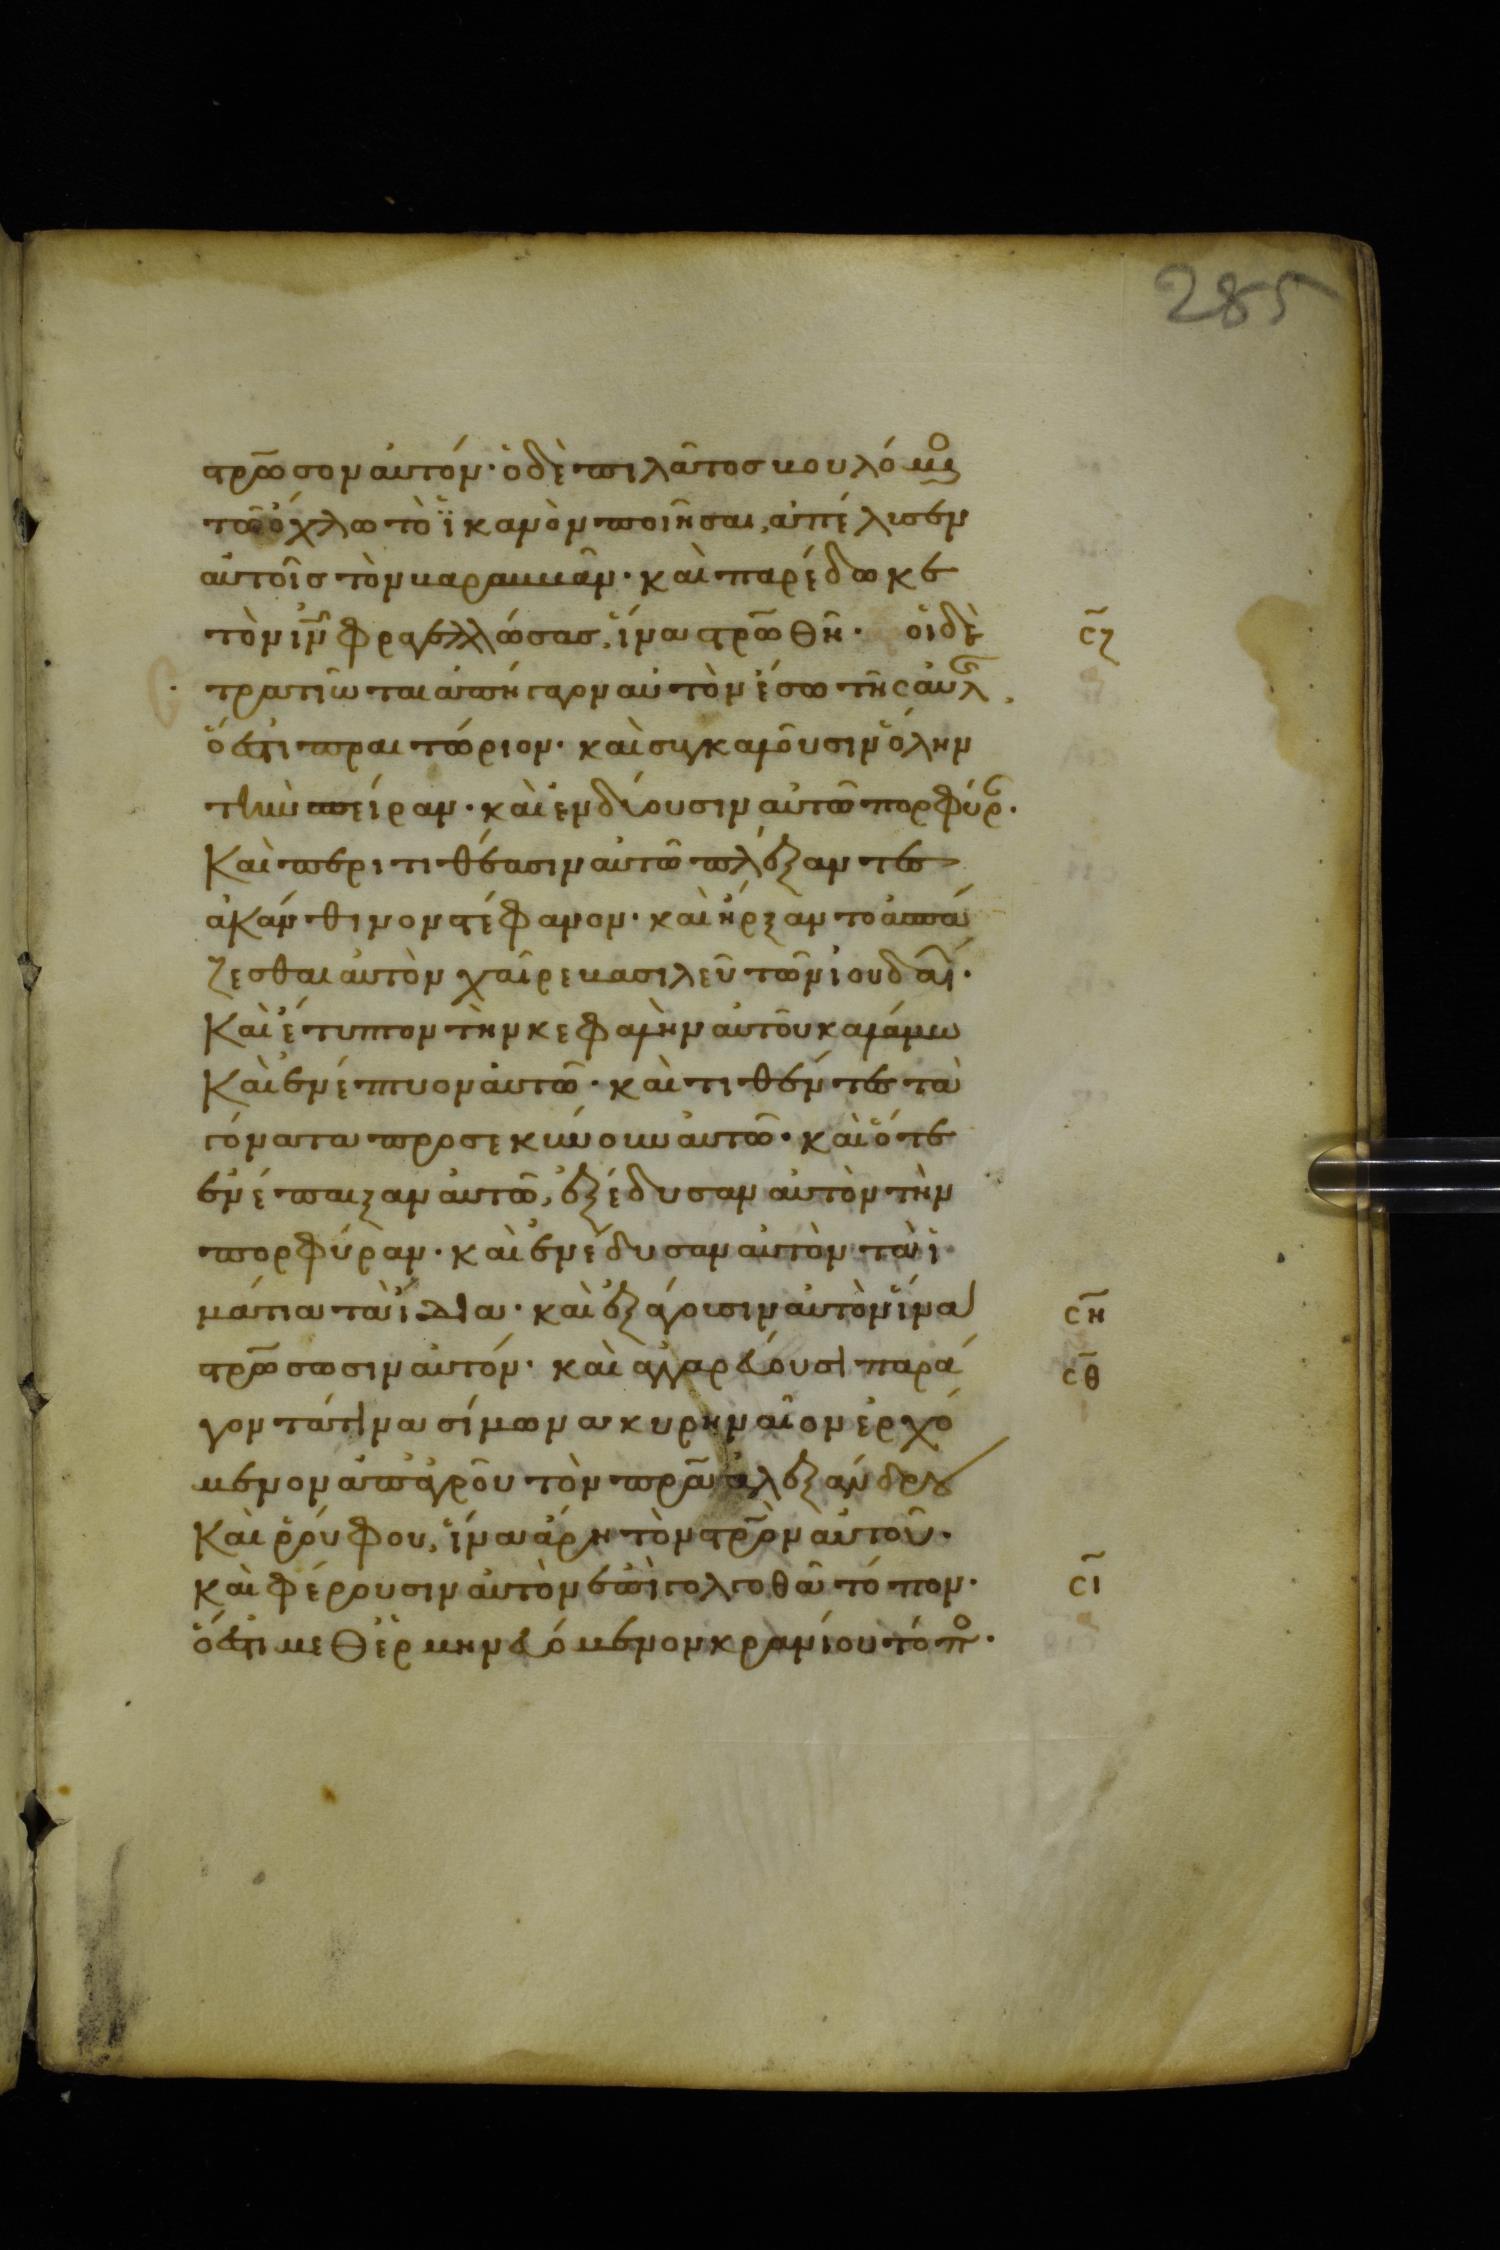 285
στρωσον αυτόν· ὁ δὲ πιλᾶτος βουλόμενος
τῶ ὄχλω τὸ ἱκανὸν ποιῆσαι, ἀπέλυσεν
αὐτοῖς τὸν βαραββᾶν· καὶ παρέδωκε
τὸν ιν φραγελλώσας, ἵνα στρωθῆ· οἱ δὲ ςζ
τρατιῶται ἀπήγαγον αὐτὸν ἔσω τῆς αὐλῆς,
ὅ ἐστι πραιτώριον· καὶ συγκαλοῦσιν ὅλην
τὴν σπείραν· καὶ ἐνδύουσιν αὐτῶ πορφύραν·
Καὶ περιτιθέασιν αὐτῶ πλέξαντες
ἀκάνθινον στέφανον· καὶ ἤρξαντο ἀσπά
ζεσθαι αὐτὸν χαῖρε βασιλεῦ τῶν ἰουδαίων·
Καὶ ἔτυπτον τὴν κεφαλὴν αὐτοῦ καλάμω
Καὶ ἐνέπτυον αὐτῶ· καὶ τιθέντες τὰ
γόνατα προσεκύνουν αὐτῶ· καὶ ὅτε
ἐνέπαιξαν αὐτῶ, ἐξέδυσαν αὐτὸν τὴν
πορφύραν· καὶ ἐνέδυσαν αὐτὸν τὰ ἱ
μάτια τὰ ἴδια· καὶ ἐξάγουσιν αὐτὸν ἵνα ςη
στρωσωσιν αὐτόν· καὶ ἀγγαρεύουσι παρά ςθ
γοντά τινα σίμωνα κυρηναῖον ἐρχό
μενον ἀπ᾽ ἀγροῦ τὸν πρα ἀλεξάνδρου
Καὶ ῥούφου, ἵνα ἄρη τὸν στρον αὐτοῦ·
καὶ φέρουσιν αὐτὸν ἐπὶ γολγοθᾶ τόπον· ςι
ὅ ἐστι μεθερμηνευόμενον κρανίου τόπος·